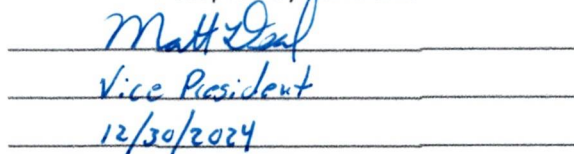 Matt
Vice President
12/30/2024